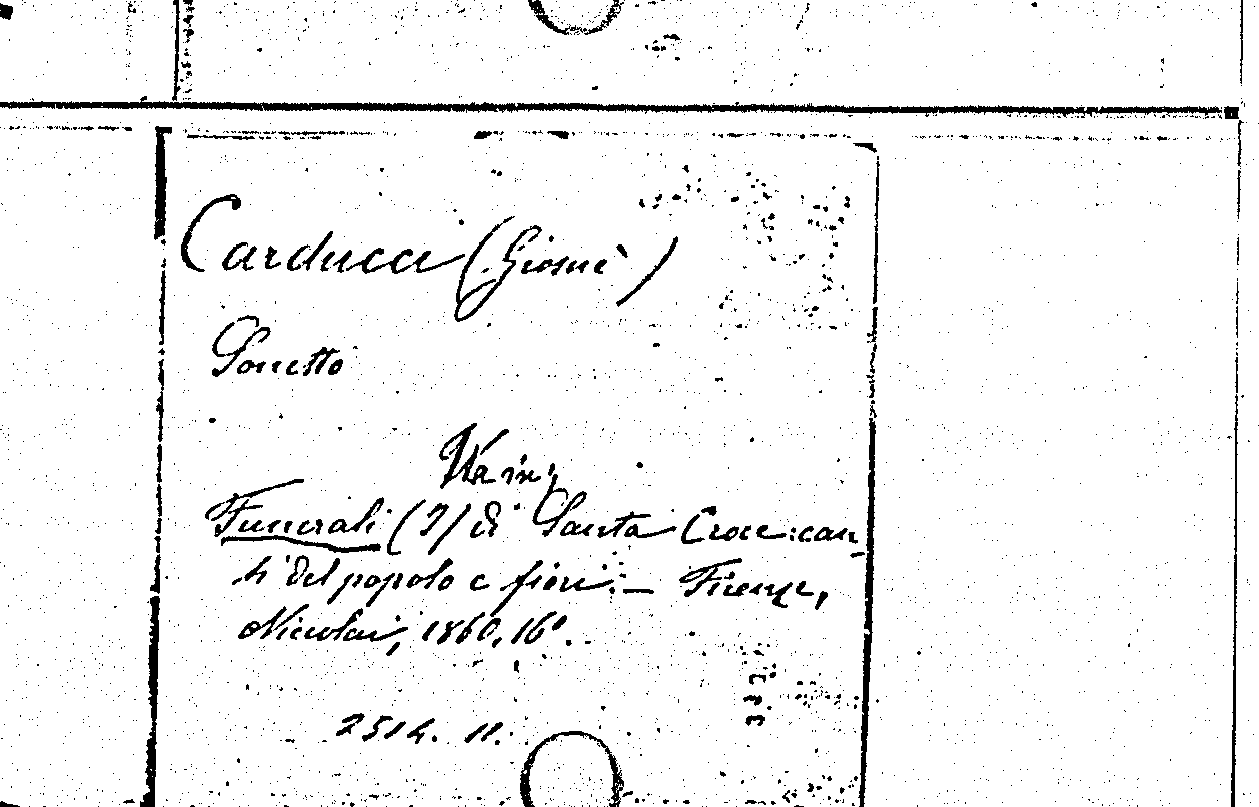 Carducci (Giosuè)
Sonetto
Va in:
Funerali (I) di Santa Croce: can-
ti del popolo e fiori. — Firenze,
Niccolai, 1860, 16º.
2514. 11.